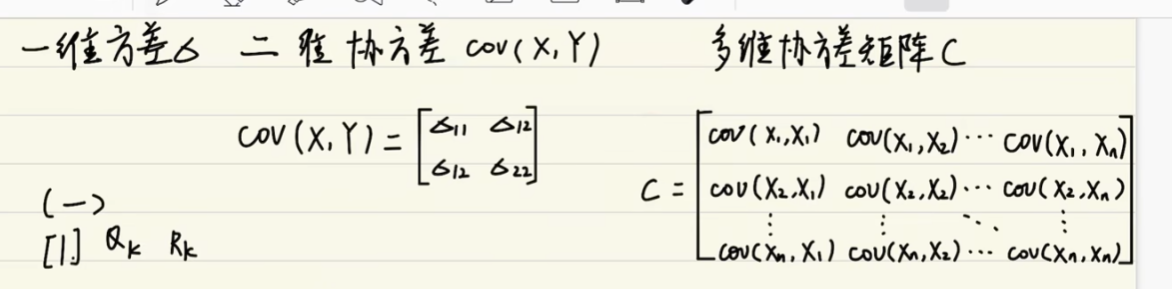 一维方差σ 二维协方差 cov(X,Y) 多维协方差矩阵C
cov(X,Y) = [σ11 σ12
σ12 σ22]
C = [cov(X1,X1) cov(X1,X2) ⋯ cov(X1,Xn)
cov(X2,X1) cov(X2,X2) ⋯ cov(X2,Xn)
⋮ ⋮ ⋱ ⋮
cov(Xn,X1) cov(Xn,X2) ⋯ cov(Xn,Xn)]
(一)
[1] Qk Rk